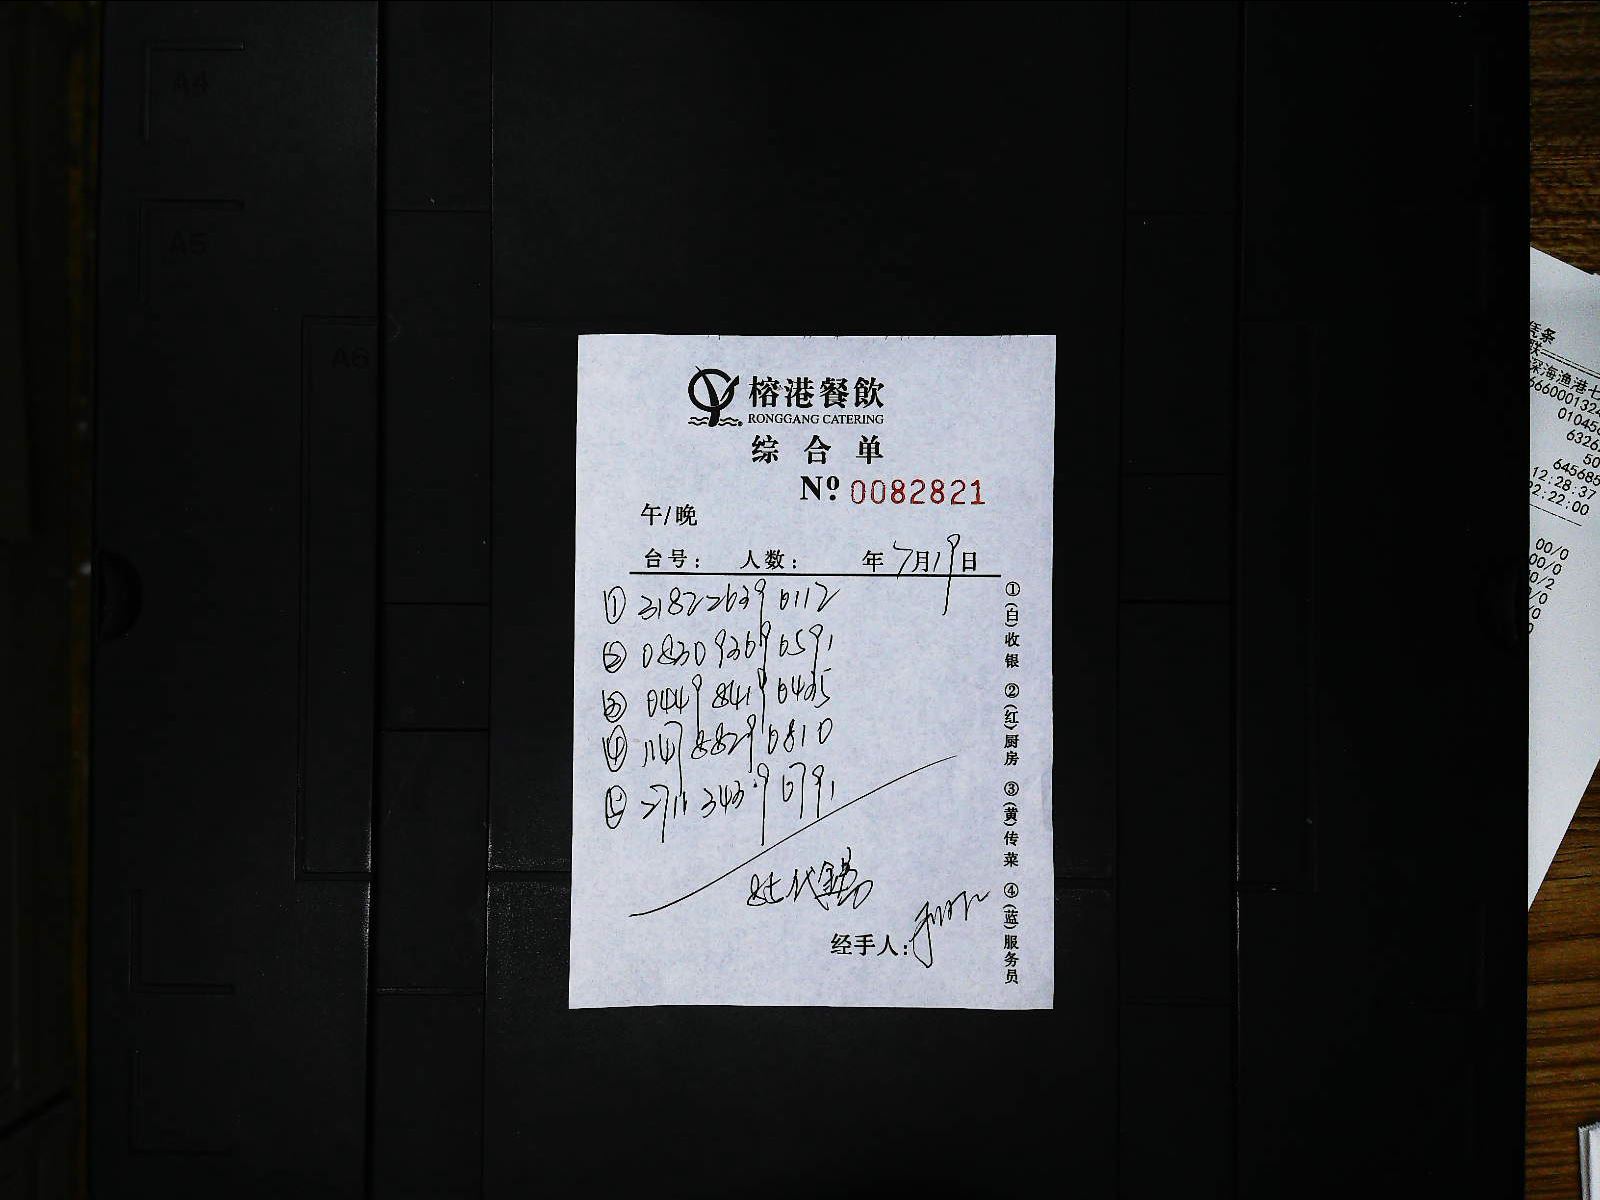 榕港餐飲
RONGGANG CATERING
综合单
Nº 0082821
午/晚
台号： 人数： 年7月19日
① 318226399112
② 083093696591
③ 044984190425
④ 114788290810
⑤ 271134396791
经手人：
①(白)收银 ②(红)厨房 ③(黄)传菜 ④(蓝)服务员
凭条
联
深海渔港七
6660001324
01045
6326
50
645685
12:28:37
22:22:00
00/0
00/0
0/2
/0
/0
A4
A5
A6